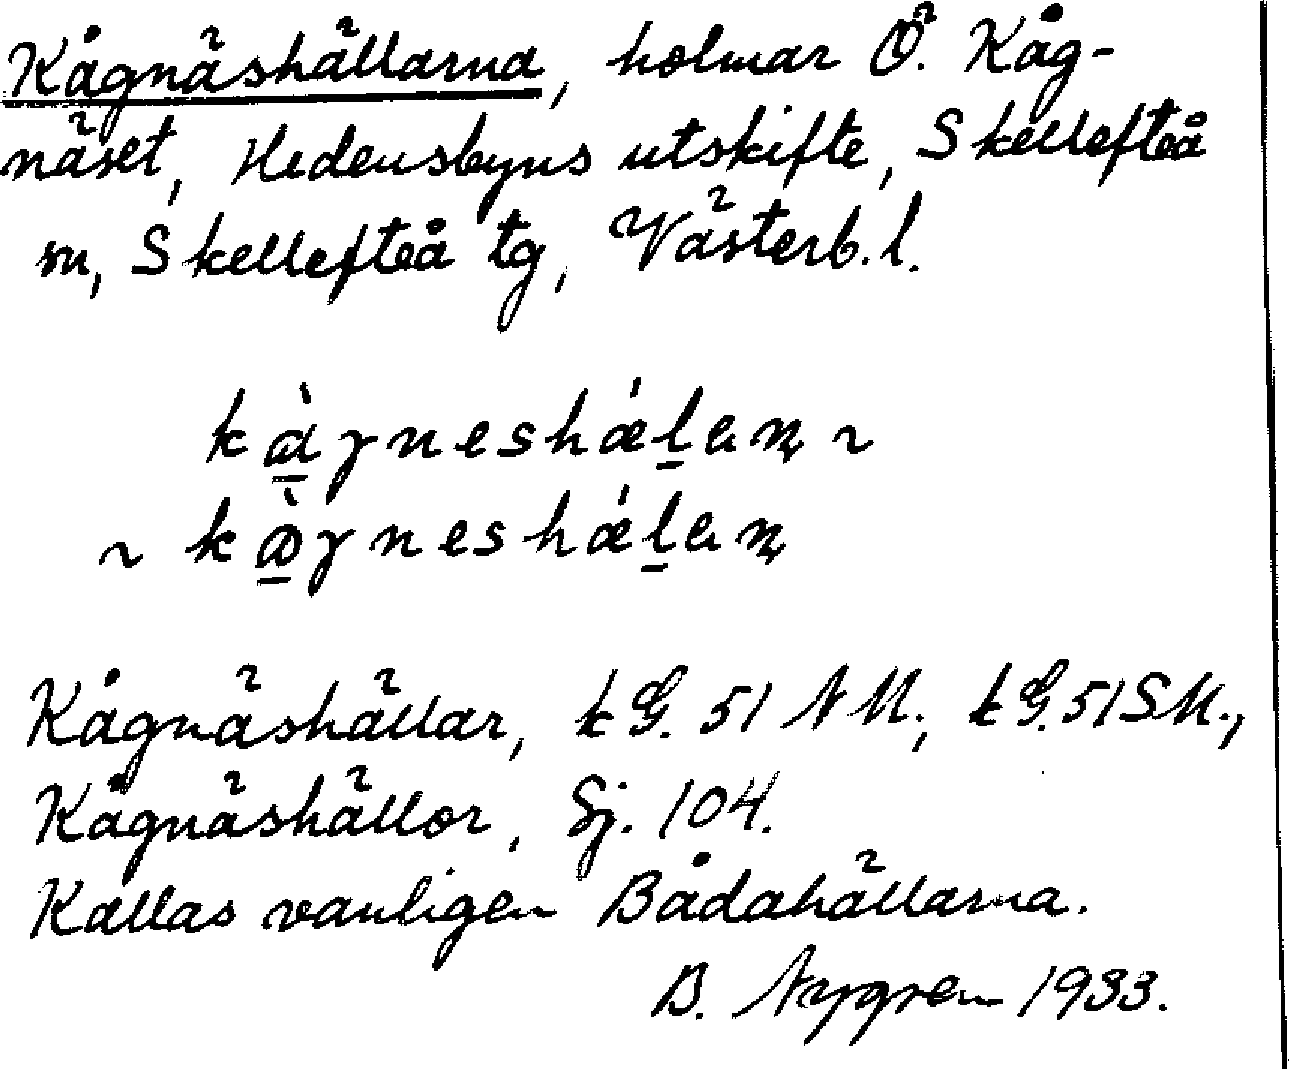 Kågnäshällarna, holmar Ö. Kåg-
näset, Hedensbyns utskifte, Skellefteå
sn, Skellefteå tg, Västerb. l.
kàɣneshǽl̠an ~
~ kɷ̀ɣneshǽl̠an
Kågnäshällar, kG. 51 NM., kG. 51 SM.,
Kågnäshällor, Sj. 104.
Kallas vanligen Bådahällarna.
B. Nygren 1933.